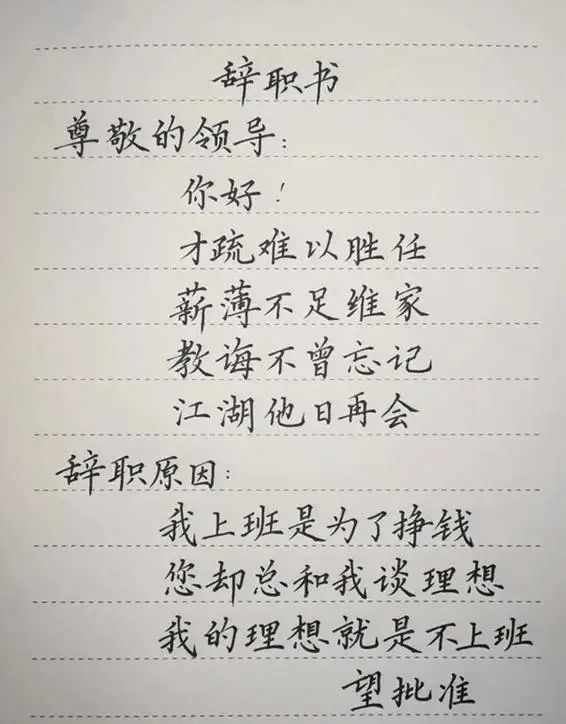 辞职书
尊敬的领导:
你好!
才疏难以胜任
薪薄不足维家
教诲不曾忘记
江湖他日再会
辞职原因:
我上班是为了挣钱
您却总和我谈理想
我的理想就是不上班
望批准